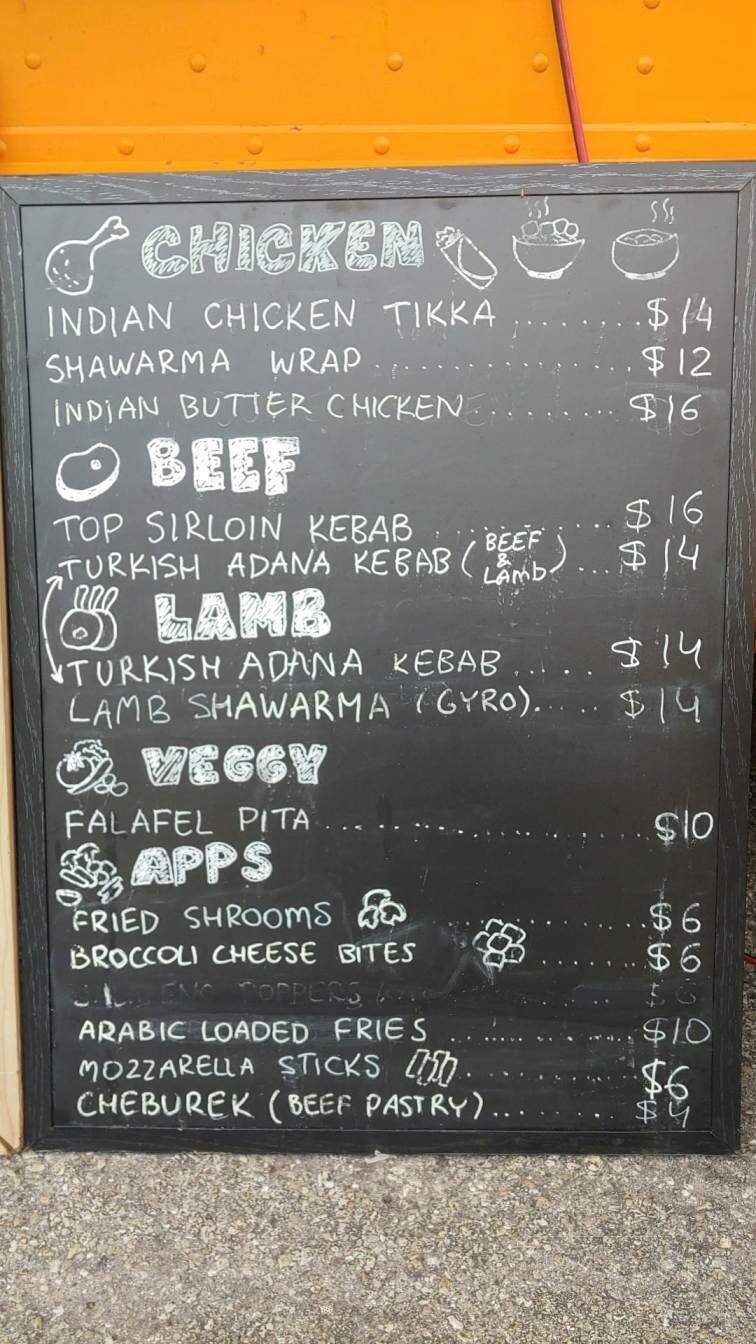 CHICKEN
INDIAN CHICKEN TIKKA ........ $14
SHAWARMA WRAP ................ $12
INDIAN BUTTER CHICKEN ......... $16
BEEF
TOP SIRLOIN KEBAB .......... $16
TURKISH ADANA KEBAB (BEEF & LAMB) ... $14
LAMB
TURKISH ADANA KEBAB ..... $14
LAMB SHAWARMA (GYRO)..... $14
VEGGY
FALAFEL PITA .................... $10
APPS
FRIED SHROOMS ............... $6
BROCCOLI CHEESE BITES ........ $6
POPPERS
ARABIC LOADED FRIES .............. $10
MOZZARELLA STICKS .......... $6
CHEBUREK (BEEF PASTRY)......... $4